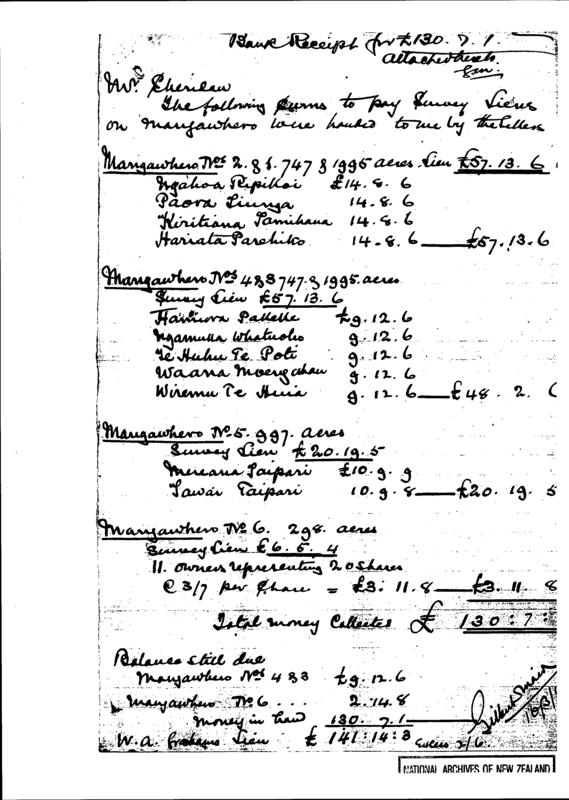 Bank Receipt for £130. 7. 1.
attached hereto
Mr. Sheridan
The following sums to pay Survey Liens
on Mangawhero were handed to me by the Sellers
Mangawhero Nos 2. & 747 & 1995 acres Lien £57. 13. 6
Ngahoa Pipikoi £14. 8. 6
Paora Tiunga 14. 8. 6
Kiritiana Tamihana 14. 8. 6
Hariata Parehiko 14. 8. 6 £57. 13. 6
Mangawhero Nos 4 & 3 747. & 1995. acres
Survey Lien £57. 13. 6
Hamiora £9. 12. 6
Ngamuka Whatuoho 9. 12. 6
Te Huhu Te Poti 9. 12. 6
Waana Moengahau 9. 12. 6
Wiremu Te Huia 9. 12. 6 £48. 2. 6
Mangawhero No 5. 997. acres
Survey Lien £20. 19. 5
Mereana Taipari £10. 9. 9
Tawai Taipari 10. 9. 8 £20. 19. 5
Mangawhero No 6. 298. acres
Survey Lien £6. 5. 4
11. owners representing 20 shares
@ 3/7 per Share = £3. 11. 8 £3. 11 8
Total money Collected £ 130 : 7 :
Balance still due
Mangawhero Nos 4 & 3 £9. 12. 6
Mangawhero No 6 . . . 2. 14. 8
Money in hand 130. 7. 1
W. A. Grahams Lien £ 141 : 14 : 3 2/6
Gilbert Mair
NATIONAL ARCHIVES OF NEW ZEALAND